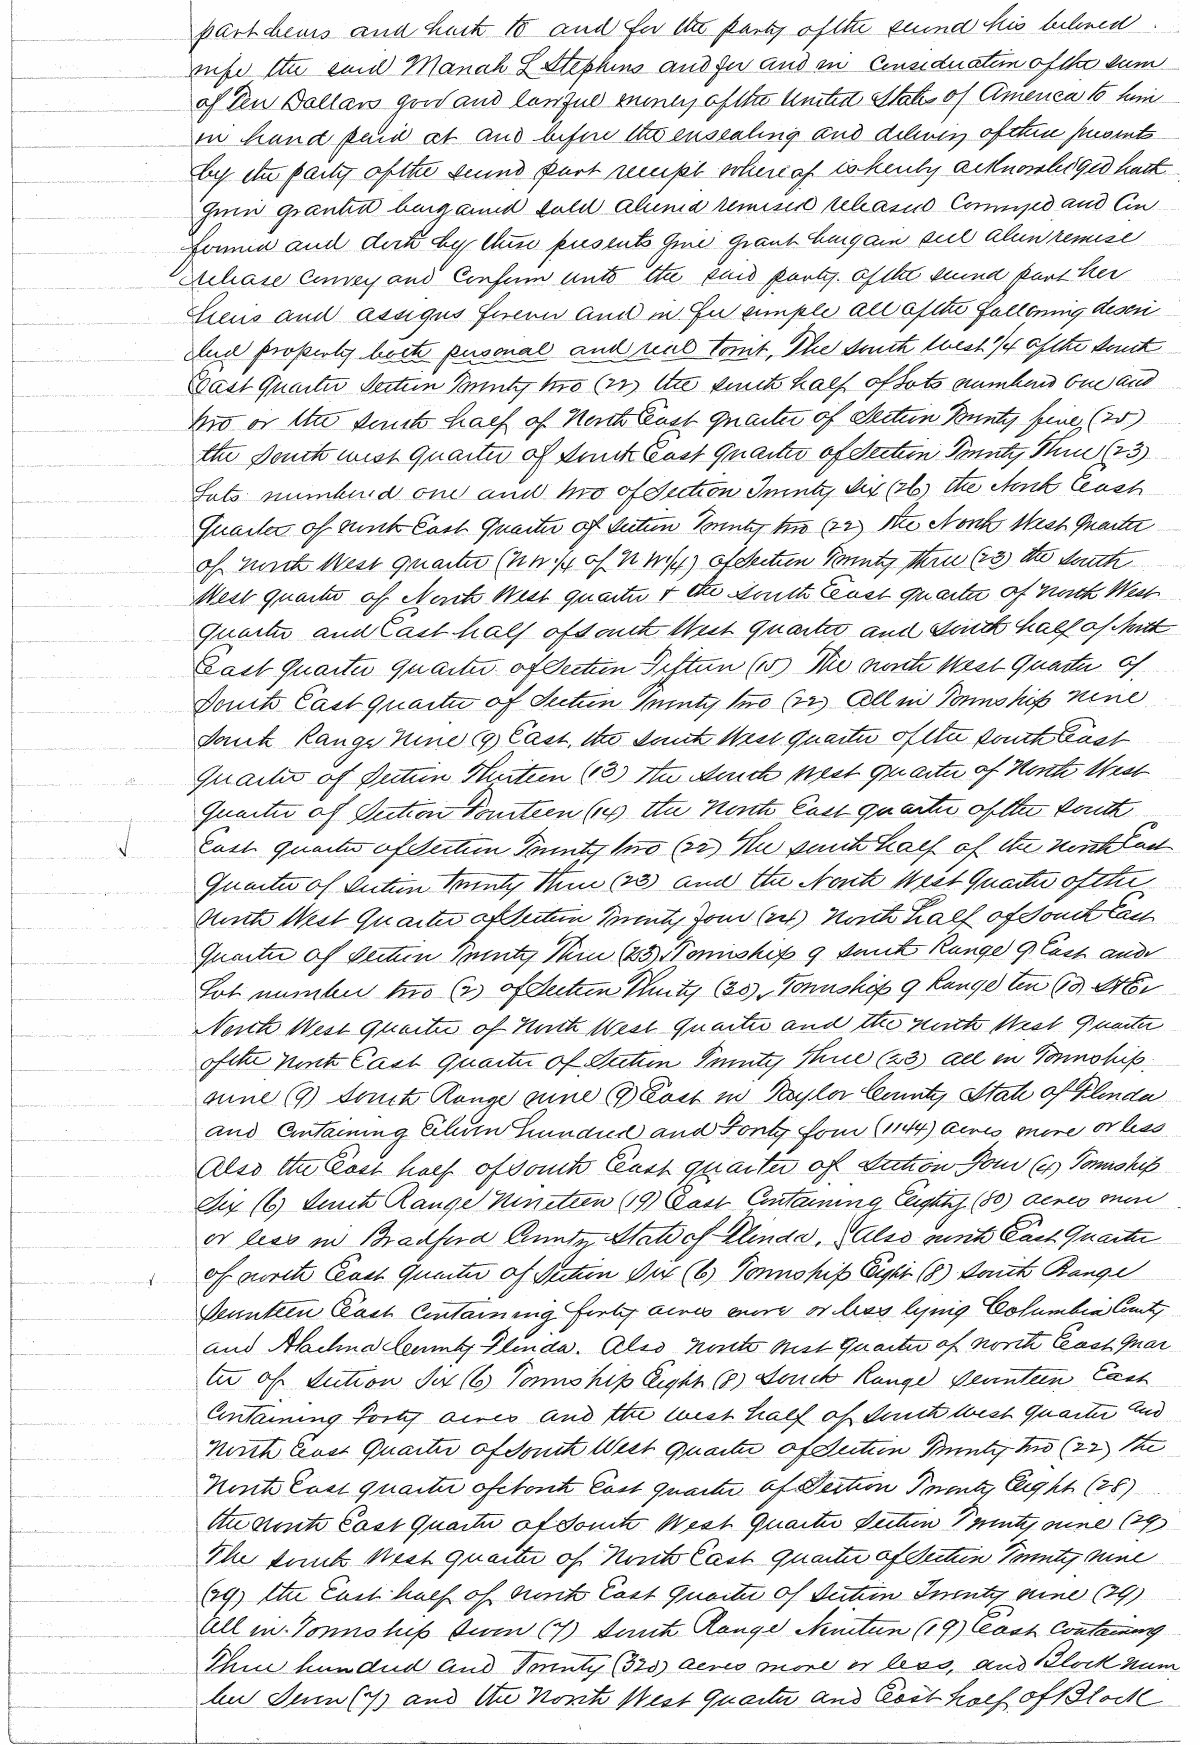 part bears and hath to and for the party of the second his beloved
wife the said Manah L Stephens and for and in Consideration of the sum
of Ten Dollars good and lawful money of the United States of America to him
in hand paid at and before the ensealing and delivery of these presents
by the party of the second part receipt whereof is hereby acknowledged hath
given granted bargained sold aliened remised released Conveyed and Con
formed and doth by these presents Give grant bargain sell alien remise
release Convey and Confirm unto the said party of the second part her
heirs and assigns forever and in fee simple all of the following descri
bed property both personal and real towit, The South West 1/4 of the South
East Quarter Section Twenty two (22) the south half of Lots numbered one and
two or the south half of North East quarter of Section Twenty five (25)
the South west quarter of South East Quarter of Section Twenty Three (23)
Lots numbered one and two of Section Twenty Six (26) the North East
Quarter of north East Quarter of Section Twenty two (22) The North West Quarter
of North West quarter (N W 1/4 of N W 1/4) of Section Twenty three (23) the South
West quarter of North West quarter & the South East quarter of North West
quarter and East half of South West quarter and South half of North
East Quarter quarter of Section Fifteen (15) The north West Quarter of
South East quarter of Section Twenty two (22) All in Township nine
South Range Nine (9) East, the South West quarter of the South East
quarter of Section Thirteen (13) the South West quarter of North West
quarter of Section Fourteen (14) the North East quarter of the South
East quarter of Section Twenty two (22) The south half of the north East
Quarter of Section Twenty Three (23) and the North West Quarter of the
North West Quarter of Section Twenty Four (24) North half of South East
Quarter of Section Twenty Three (23) Township 9 South Range 9 East and
Lot number two (2) of Section Thirty (30), Township 9 Range ten (10) S & E
North West quarter of North West quarter and the North West quarter
of the North East quarter of Section Twenty Three (23) all in Township
nine (9) South Range nine (9) East in Taylor County State of Florida
and Containing Eleven hundred and Forty four (1144) acres more or less
Also the East half of South East quarter of Section Four (4) Township
Six (6) South Range Nineteen (19) East Containing Eighty (80) acres more
or less in Bradford County State of Florida. Also north East Quarter
of north East Quarter of Section Six (6) Township Eight (8) South Range
Seventeen East Containing forty acres more or less lying Columbia County
and Alachua County Florida. Also North West Quarter of North East Quar
ter of Section Six (6) Township Eight (8) South Range Seventeen East
Containing Forty acres and the West half of South West quarter and
North East Quarter of South West quarter of Section Twenty two (22) the
North East quarter of North East quarter of Section Twenty Eight (28)
the North East Quarter of South West Quarter Section Twenty nine (29)
The South West quarter of North East quarter of Section Twenty nine
(29) the East half of North East Quarter of Section Twenty nine (29)
All in Township Seven (7) South Range Nineteen (19) East Containing
Three hundred and Twenty (320) acres more or less, and Block num
ber Seven (7) and the North West Quarter and East half of Block